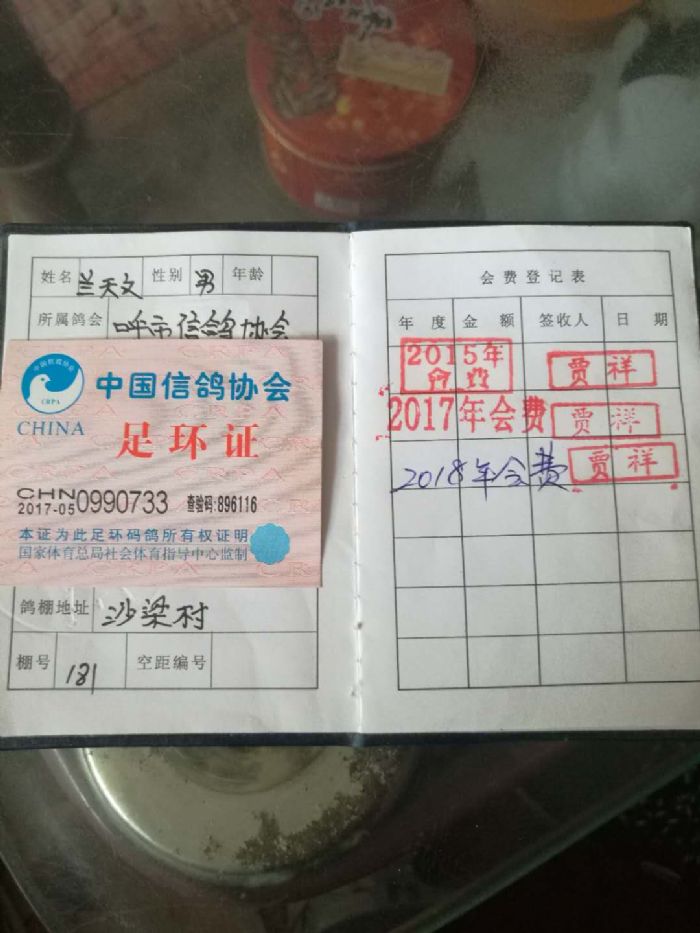 姓名 兰天文 性别 男 年龄
所属鸽会 呼市信鸽协会
中国信鸽协会
CRPA
CHINA
足环证
CHN
2017-05 0990733 查验码:896116
本证为此足环码鸽所有权证明
国家体育总局社会体育指导中心监制
鸽棚地址 沙梁村
棚号 181 空距编号
会费登记表
年度 金额 签收人 日期
2015年
会费 贾祥
2017年会费 贾祥
2018年会费 贾祥